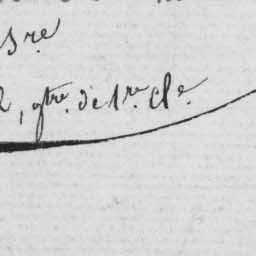 3re
, qtre. de 1re. Cle.